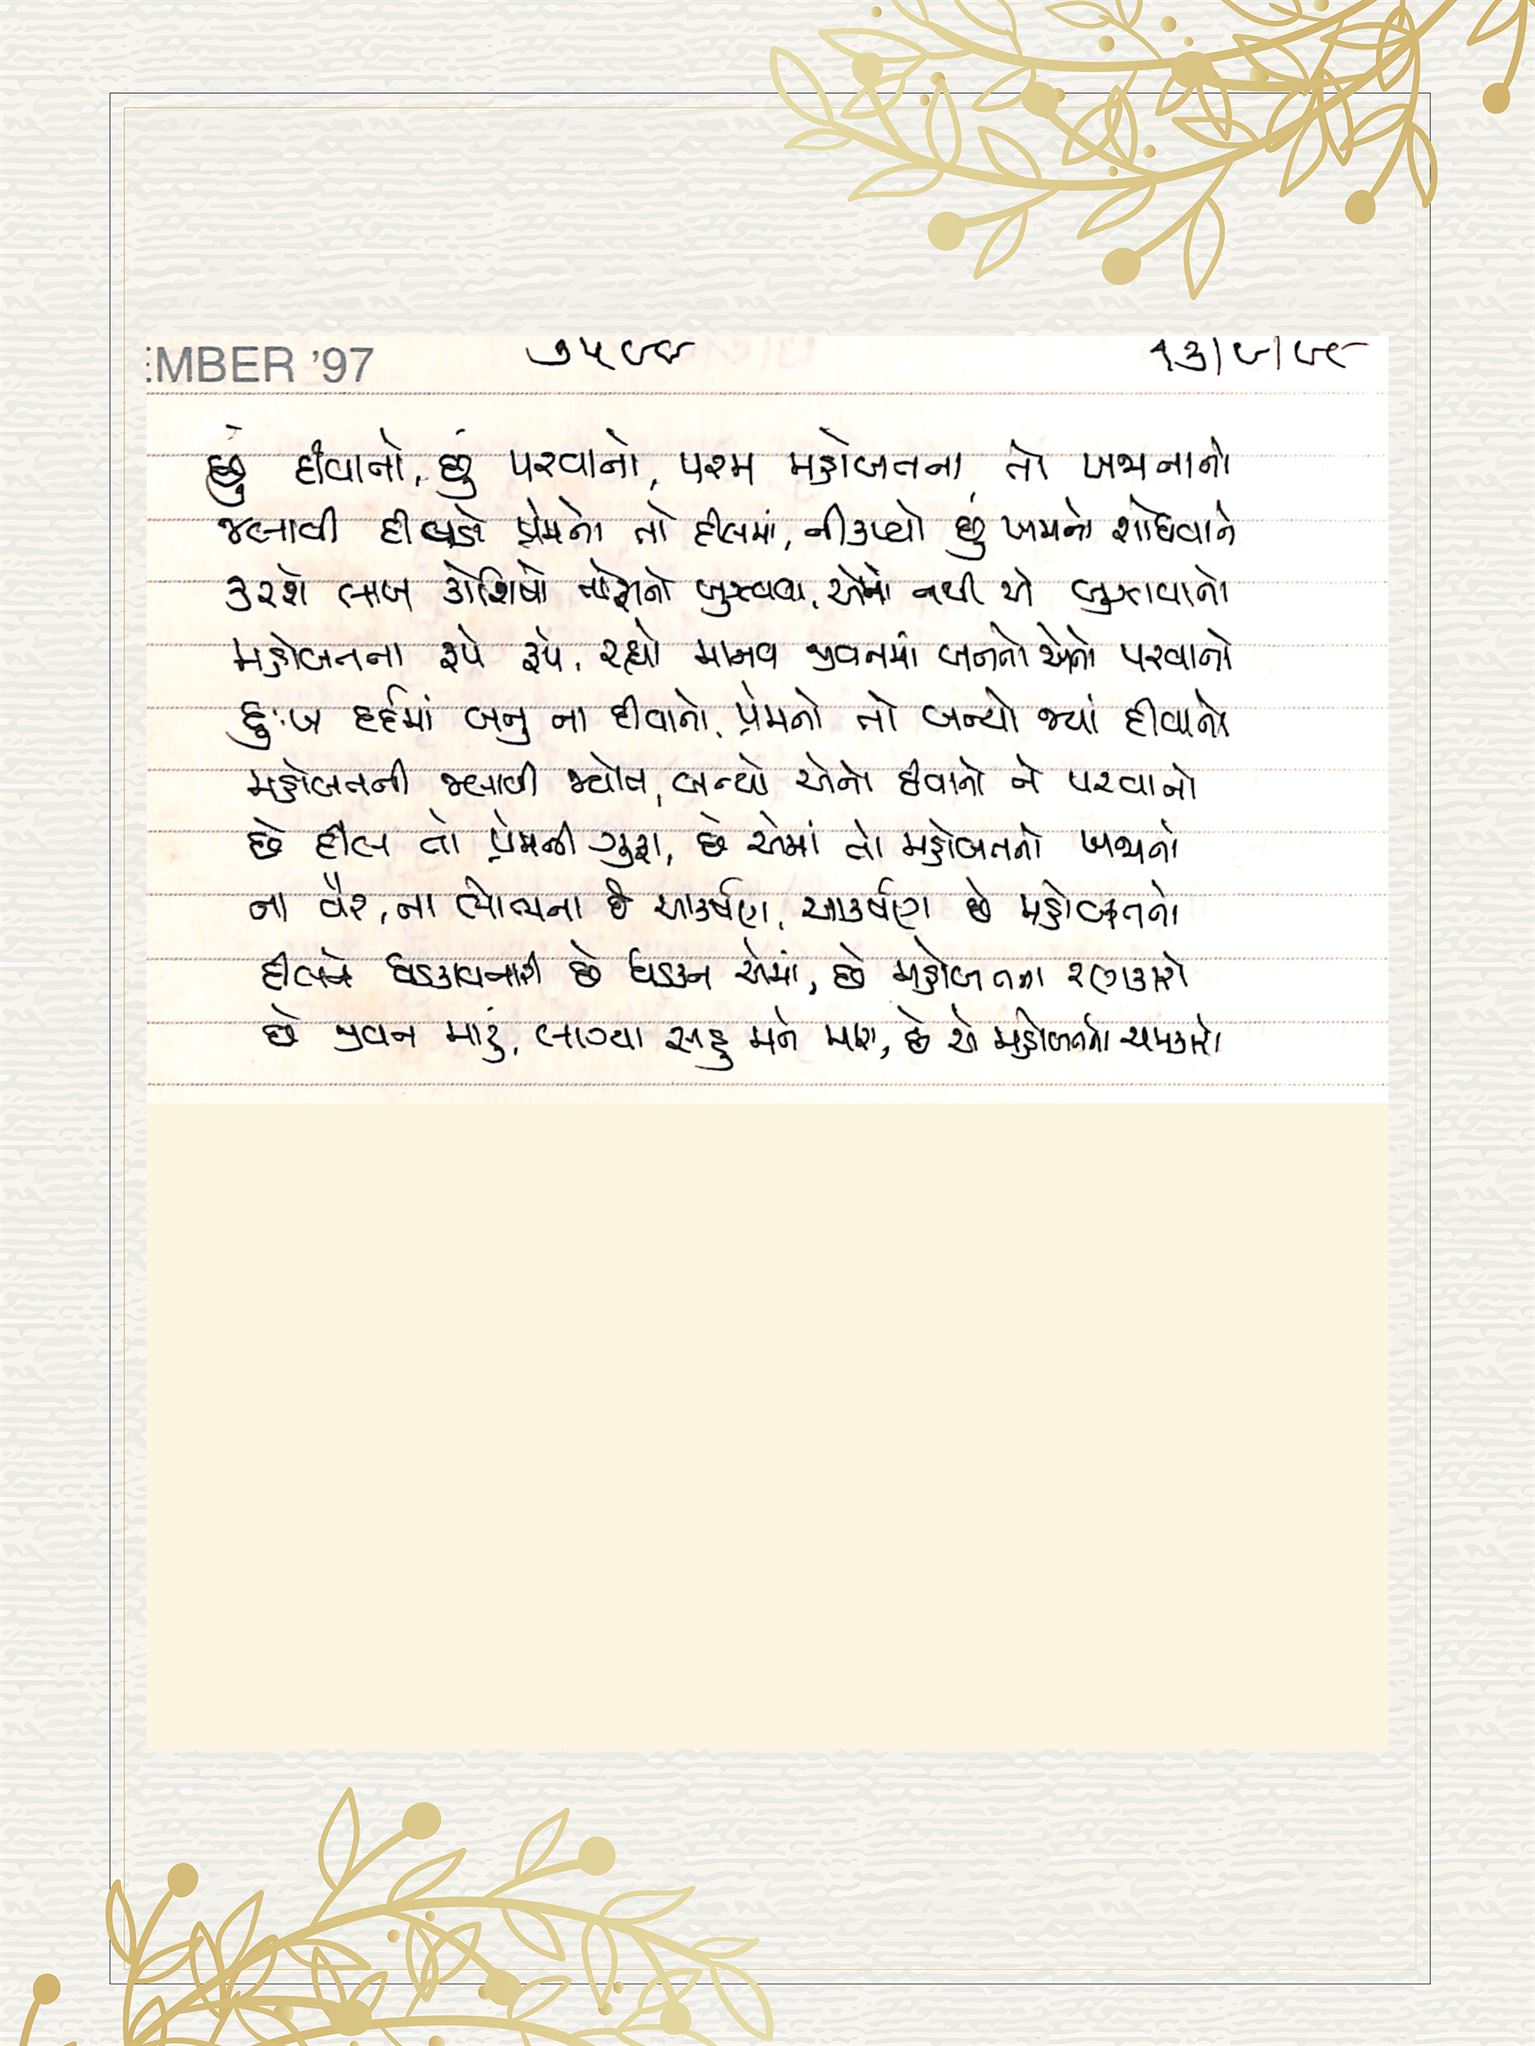 EMBER '97 ૭૫૯૯ ૧૩/૯/૯૮
છું દીવાનો, છું પરવાનો, પરમ મહોબતના તો ખજાનાનો
જલાવી દીવડો પ્રેમનો તો દીલમાં, નીકળ્યો છું ખજાનો શોધવાને
કરશે લાખ કોશિષો તોફાનો બુઝાવવા, એનો નથી એ બુઝાવાનો
મહોબતના રૂપે રૂપે, રહ્યો માનવ જીવનમાં બનતો એનો પરવાનો
દુઃખ દર્દમાં બનુ ના દીવાનો, પ્રેમનો તો બન્યો જ્યાં દીવાનો
મહોબતની જલાવી જ્યોત, બન્યો એનો દીવાનો ને પરવાનો
છે દીલ તો પ્રેમની ગુફા, છે એમાં તો મહોબતનો ખજાનો
ના વૈર, ના વૈમનસ્યના છે આકર્ષણ, આકર્ષણ છે મહોબતનો
દીલને ધડકાવનારી છે ધડકન એમાં, છે મહોબતના રણકારો
છે જીવન મારું, લાગ્યા સહુ મને મારા, છે એ મહોબતનો ચમકારો